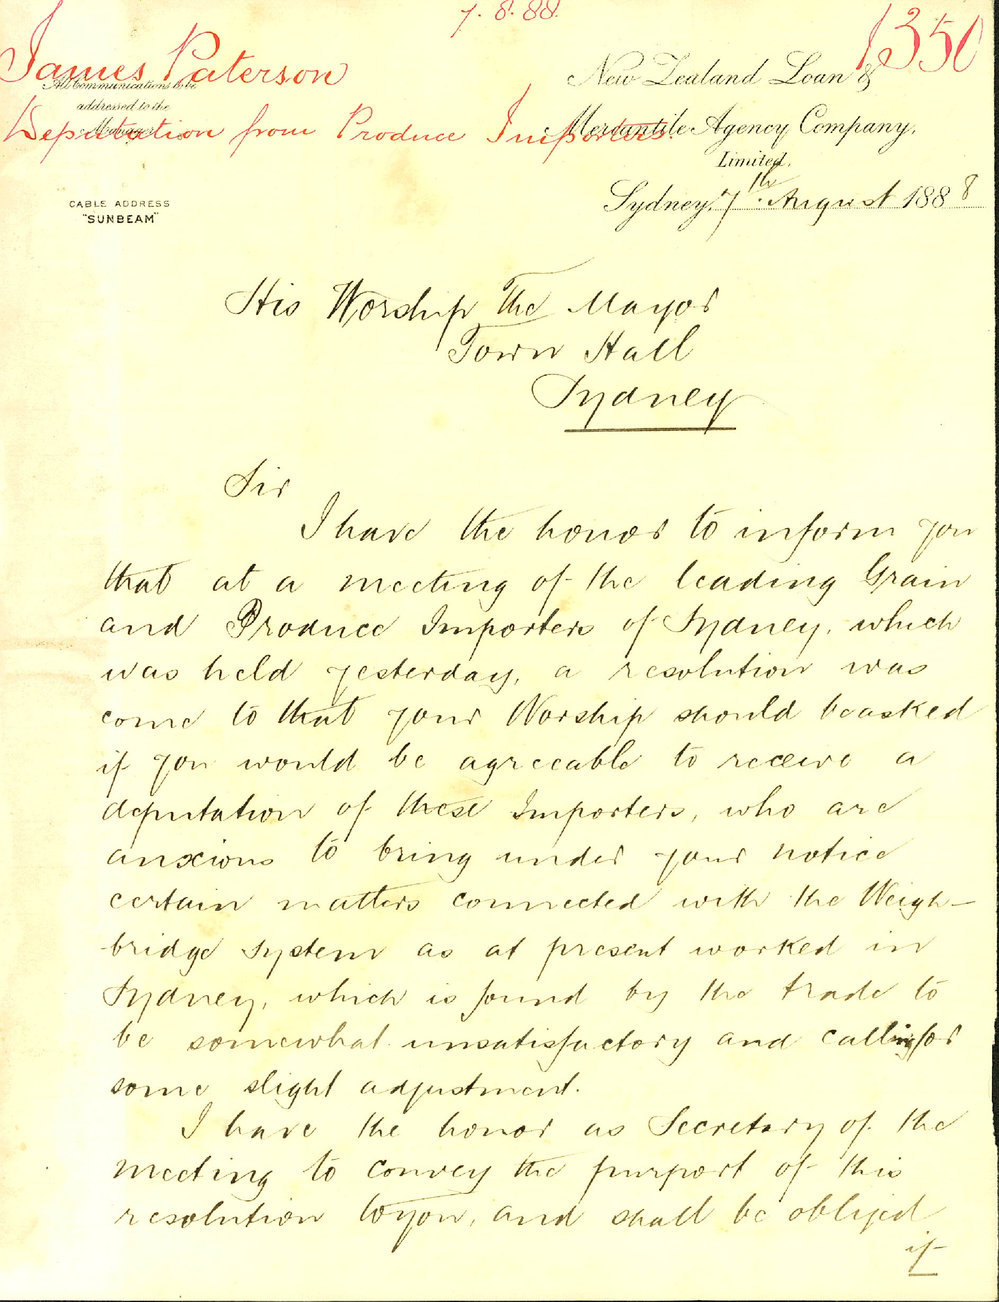 7. 8. 88.
1350
James Paterson
Deputation from Produce Importers.
All communications to be
addressed to the
Manager
CABLE ADDRESS
"SUNBEAM"
New Zealand Loan &
Mercantile Agency Company,
Limited.
Sydney, 7th August 1888
His Worship The Mayor
Town Hall
Sydney
Sir
I have the honor to inform you
that at a meeting of the leading Grain
and Produce Importers of Sydney, which
was held yesterday, a resolution was
come to that your Worship should be asked
if you would be agreeable to receive a
deputation of these Importers, who are
anxious to bring under your notice
certain matters connected with the Weigh-
bridge system as at present worked in
Sydney, which is found by the trade to
be somewhat unsatisfactory and calling for
some slight adjustment.
I have the honor as Secretary of the
meeting to convey the purport of this
resolution to you, and shall be obliged
if